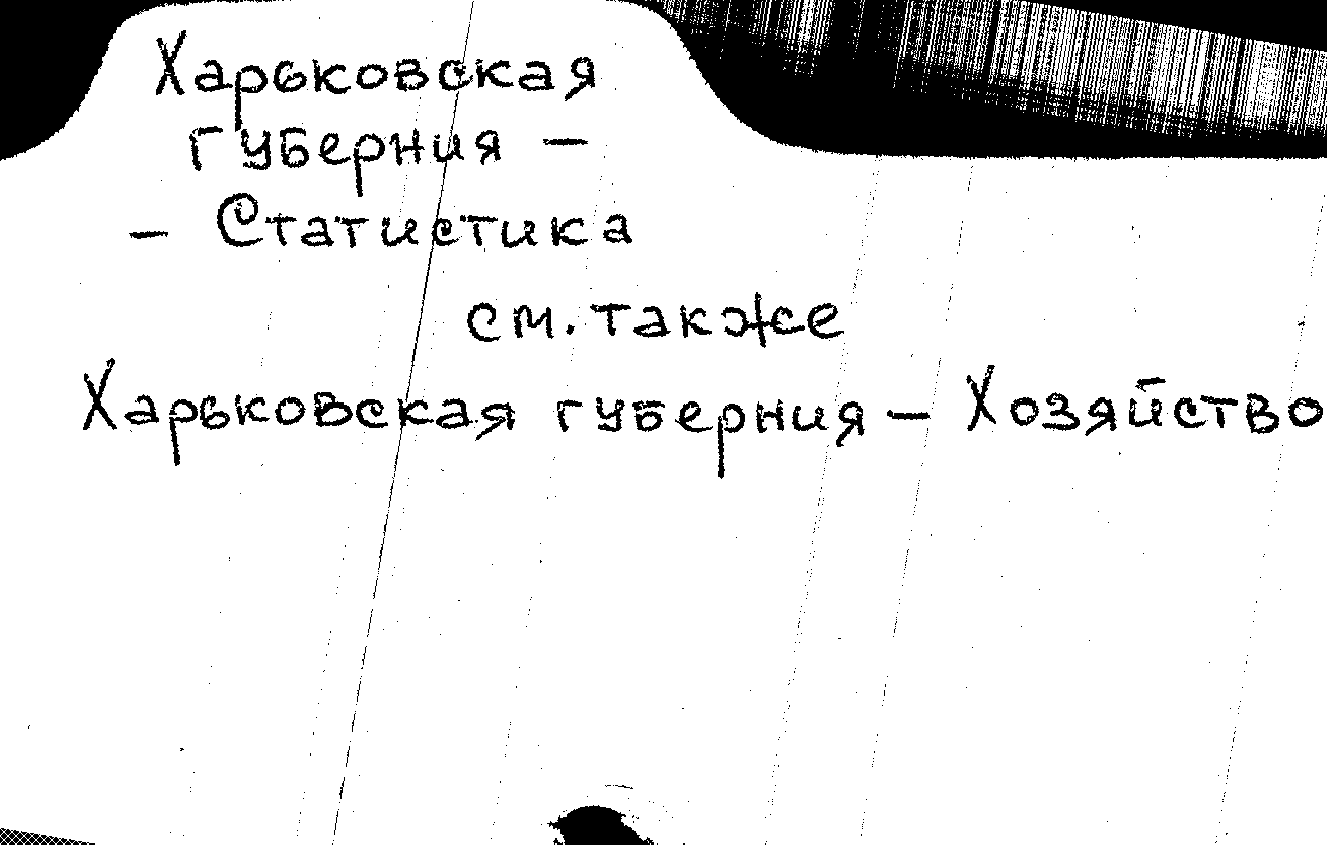 Харьковская
губерния –
– Статистика
см. также
Харьковская губерния – Хозяйство